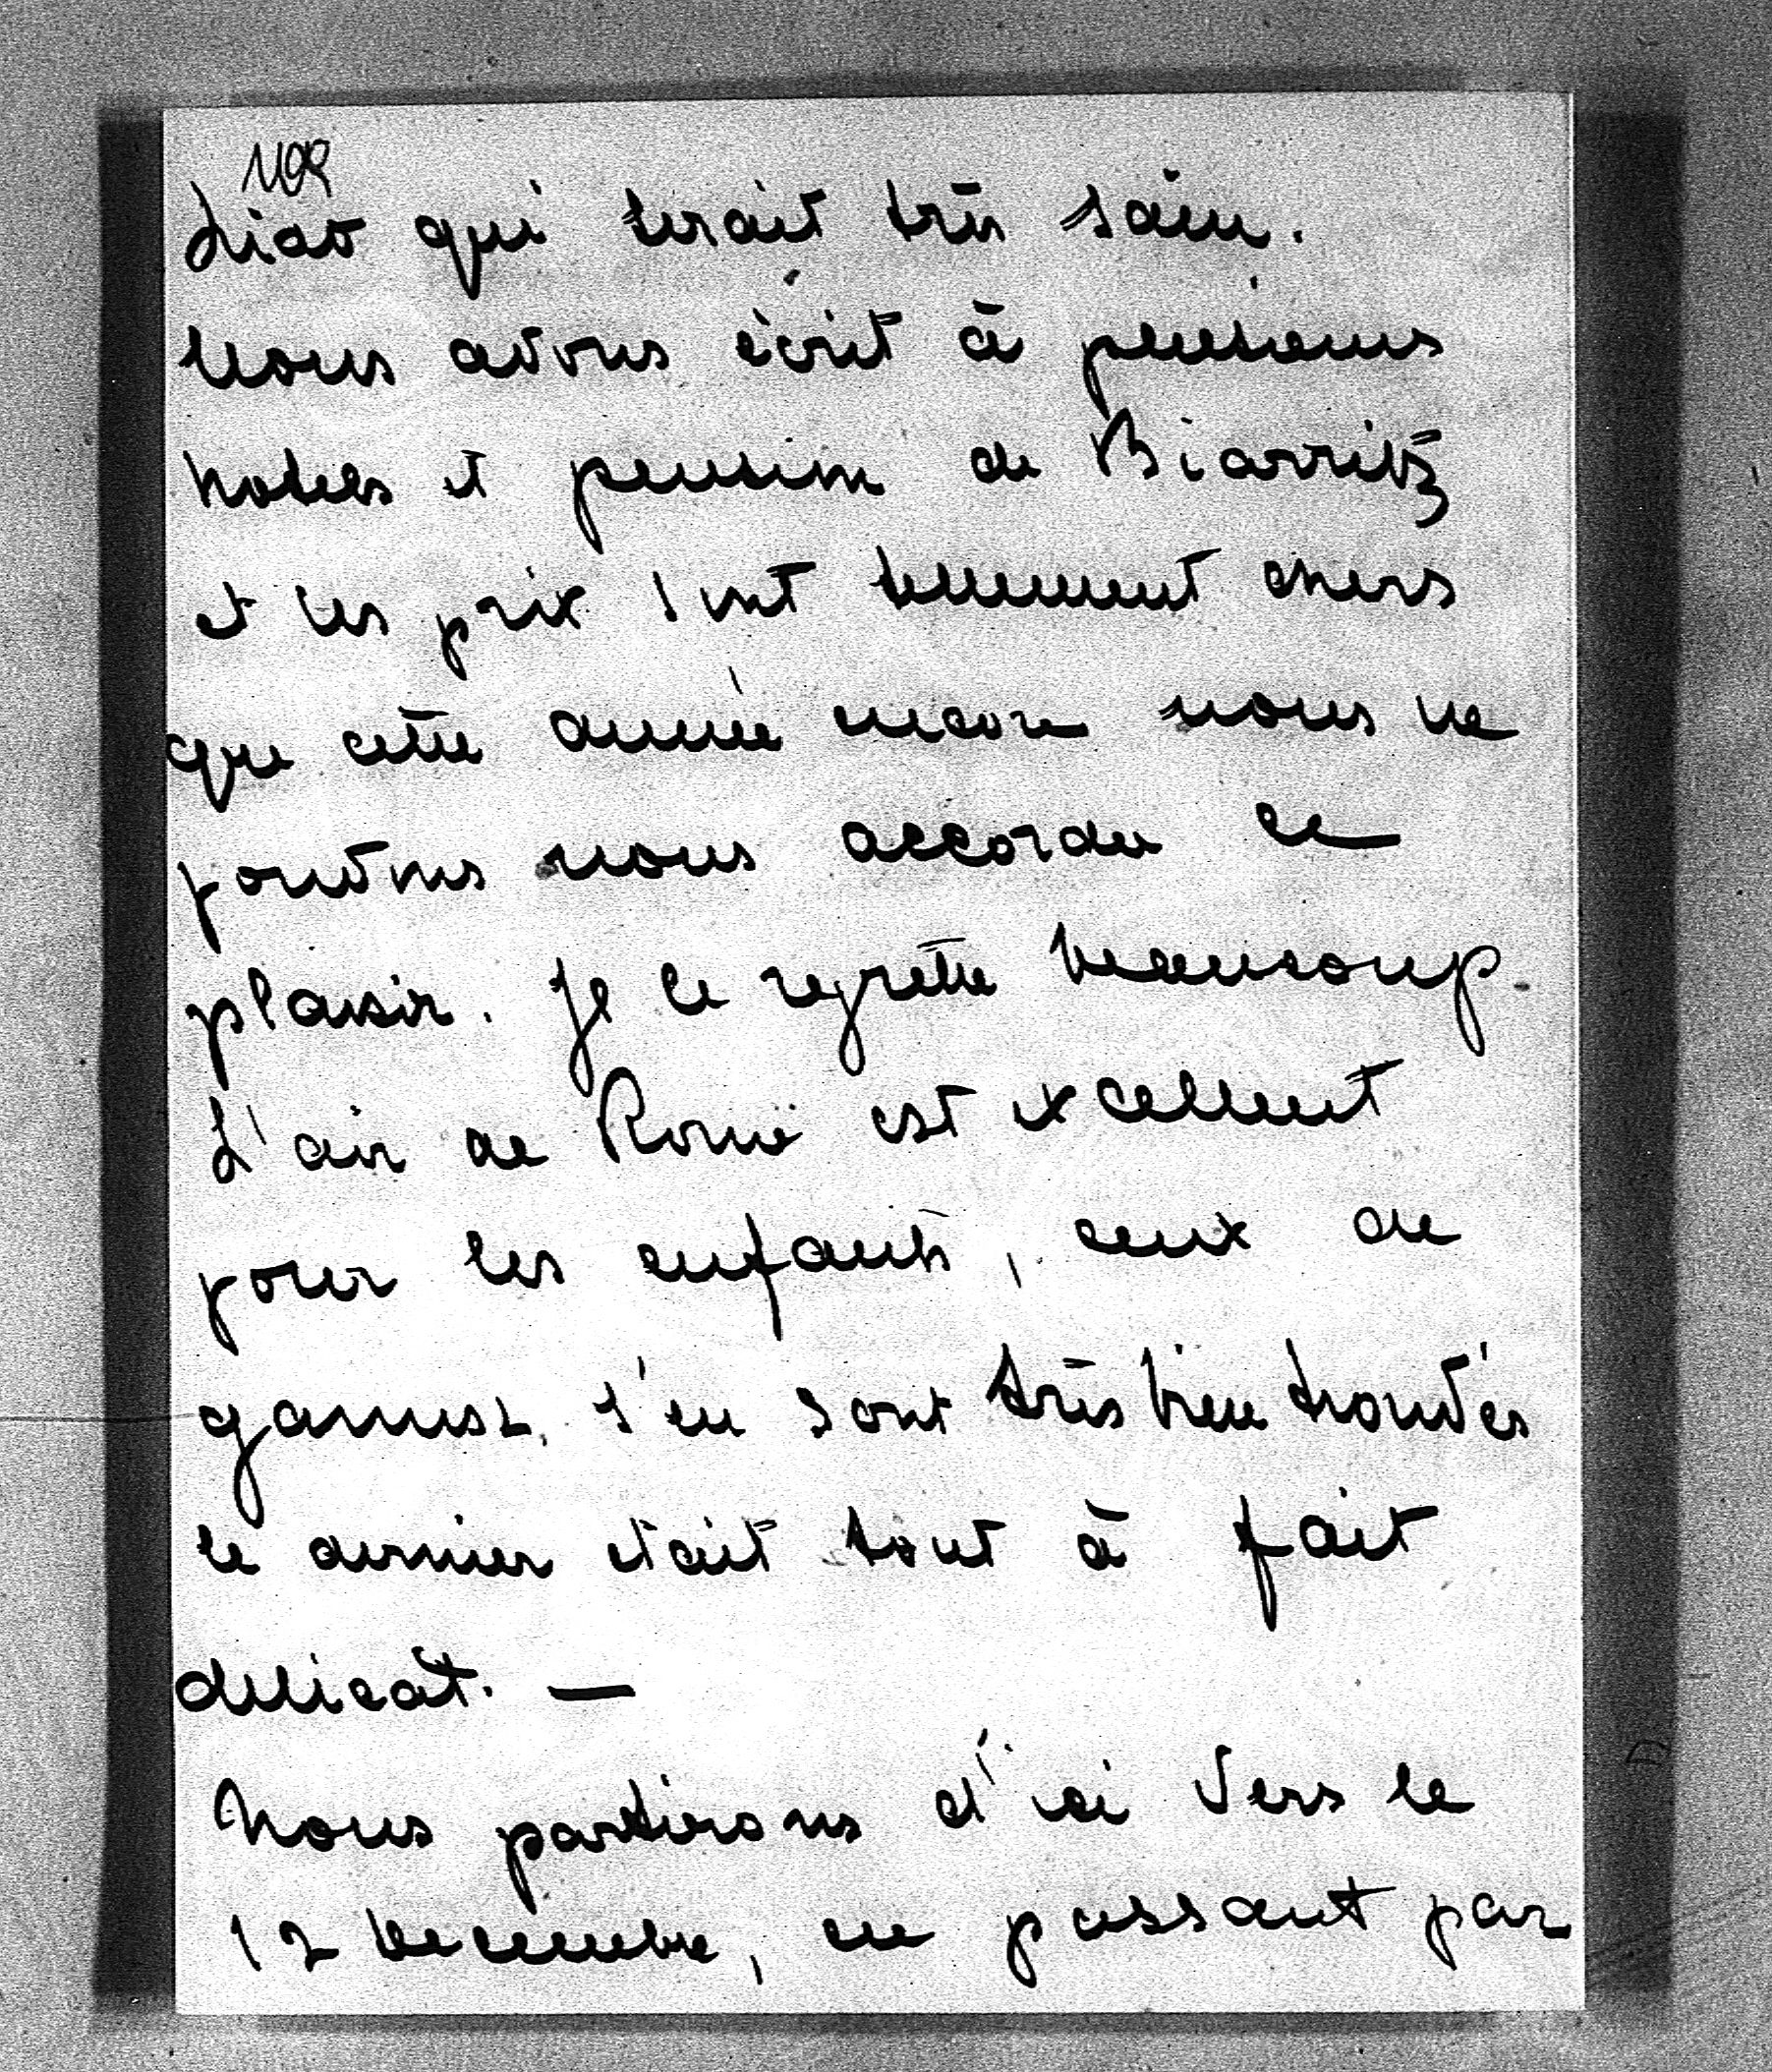 qui serait très sain.
Nous avons écrit à plusieurs
hotels et pension de Biarritz
et les prix sont tellement chers
que cette année encore nous ne
pouvons nous accorder ce
plaisir. Je le regrette beaucoup.
L'air de Rome est excellent
pour les enfants, ceux de
s'en sont très bien trouvés
le dernier était tout à fait
delicat. —
Nous partirons d'ici vers le
12 Decembre, en passant par